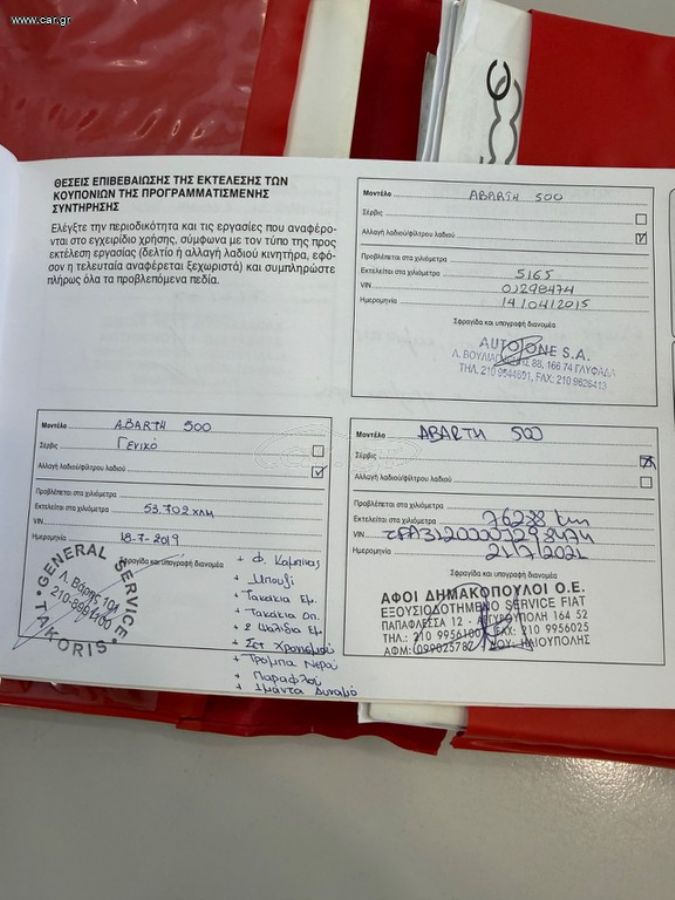 www.car.gr
ΘΕΣΕΙΣ ΕΠΙΒΕΒΑΙΩΣΗΣ ΤΗΣ ΕΚΤΕΛΕΣΗΣ ΤΩΝ
ΚΟΥΠΟΝΙΩΝ ΤΗΣ ΠΡΟΓΡΑΜΜΑΤΙΣΜΕΝΗΣ
ΣΥΝΤΗΡΗΣΗΣ
Ελέγξτε την περιοδικότητα και τις εργασίες που αναφέρο-
νται στο εγχειρίδιο χρήσης, σύμφωνα με τον τύπο της προς
εκτέλεση εργασίας (δελτίο ή αλλαγή λαδιού κινητήρα, εφό-
σον η τελευταία αναφέρεται ξεχωριστά) και συμπληρώστε
πλήρως όλα τα προβλεπόμενα πεδία.
Μοντέλο ABARTH 500
Σέρβις
Αλλαγή λαδιού/φίλτρου λαδιού
Προβλέπεται στα χιλιόμετρα
Εκτελείται στα χιλιόμετρα 5165
VIN 01298474
Ημερομηνία 14/04/2015
Σφραγίδα και υπογραφή διανομέα
AUTO ONE S.A.
Λ. ΒΟΥΛΙΑΓΜΕΝΗΣ 88, 166 74 ΓΛΥΦΑΔΑ
ΤΗΛ. 210 9644691, FAX: 210 9626413
Μοντέλο ABARTH 500
Σέρβις Γενικό
Αλλαγή λαδιού/φίλτρου λαδιού
Προβλέπεται στα χιλιόμετρα
Εκτελείται στα χιλιόμετρα 53.702 χλμ
VIN
Ημερομηνία 18-7-2019
Σφραγίδα και υπογραφή διανομέα
GENERAL SERVICE
Λ. Βάρης 101
210-8991100
TAKORIS
+ Φ. Καμπίνας
+ Μπουζί
+ Τακάκια Εμ.
+ Τακάκια Οπ.
+ 2 Ψαλίδια Εμ
+ Σετ Χρονισμού
+ Τρόμπα Νερού
+ Παραφλού
+ Ιμάντα Δυναμό
Μοντέλο ABARTH 500
Σέρβις
Αλλαγή λαδιού/φίλτρου λαδιού
Προβλέπεται στα χιλιόμετρα
Εκτελείται στα χιλιόμετρα 76288 km
VIN ZFA31200001298474
Ημερομηνία 21/7/2021
Σφραγίδα και υπογραφή διανομέα
ΑΦΟΙ ΔΗΜΑΚΟΠΟΥΛΟΙ Ο.Ε.
ΕΞΟΥΣΙΟΔΟΤΗΜΕΝΟ SERVICE FIAT
ΠΑΠΑΦΛΕΣΣΑ 12 - ΑΡΓΥΡΟΥΠΟΛΗ 164 52
ΤΗΛ.: 210 9956100 FAX: 210 9956025
ΑΦΜ: 099825787 ΔΟΥ: ΗΛΙΟΥΠΟΛΗΣ